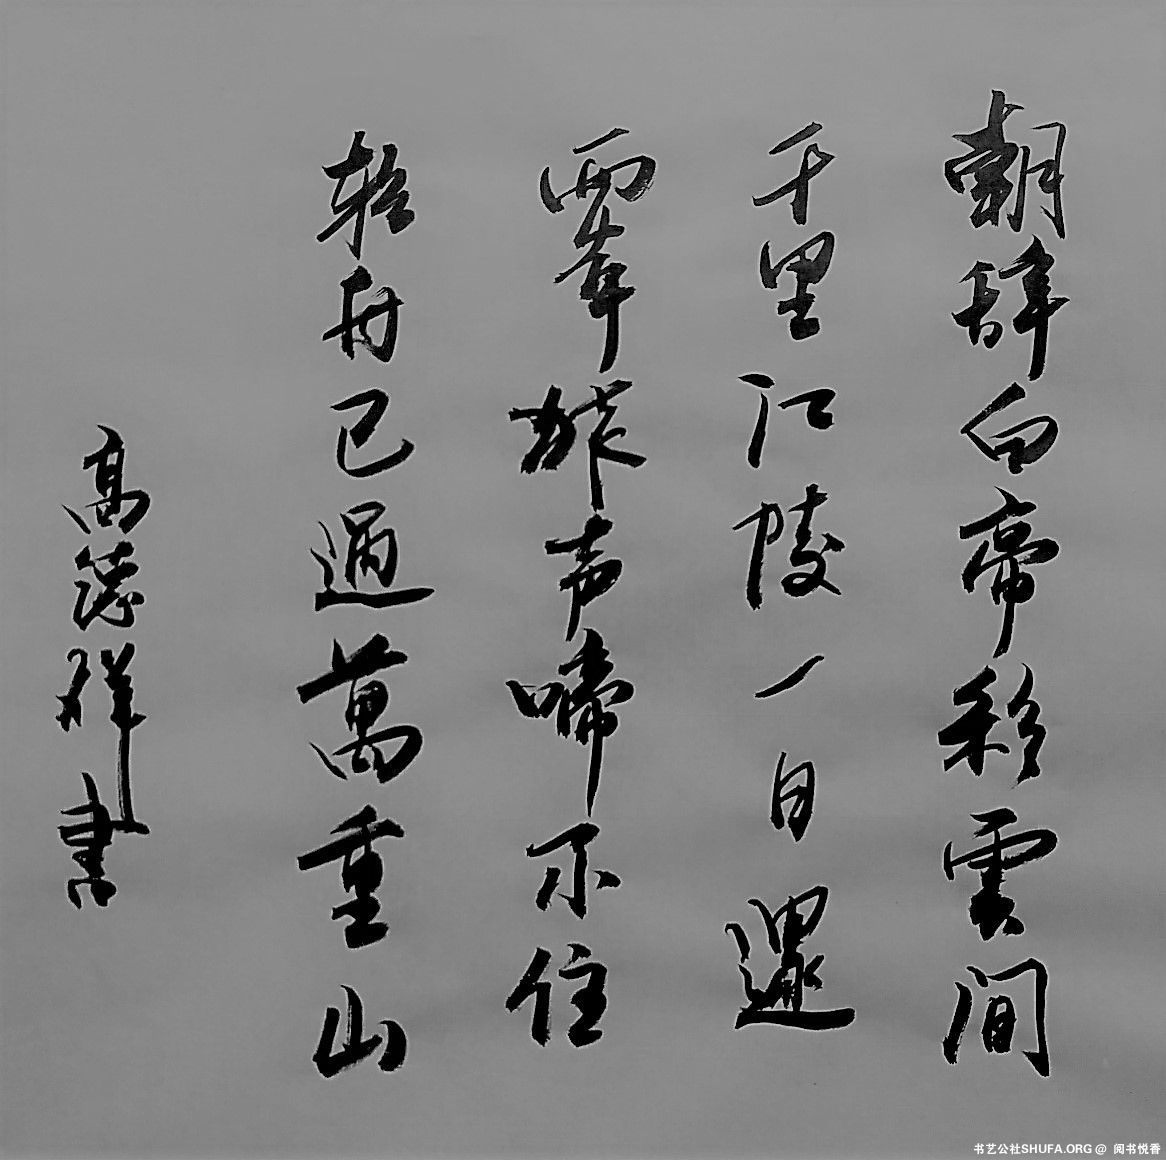 朝辞白帝彩雲間
千里江陵一日還
两岸猿声啼不住
軽舟已過萬重山
高德祥書
书艺公社SHUFA.ORG @ 阅书悦香